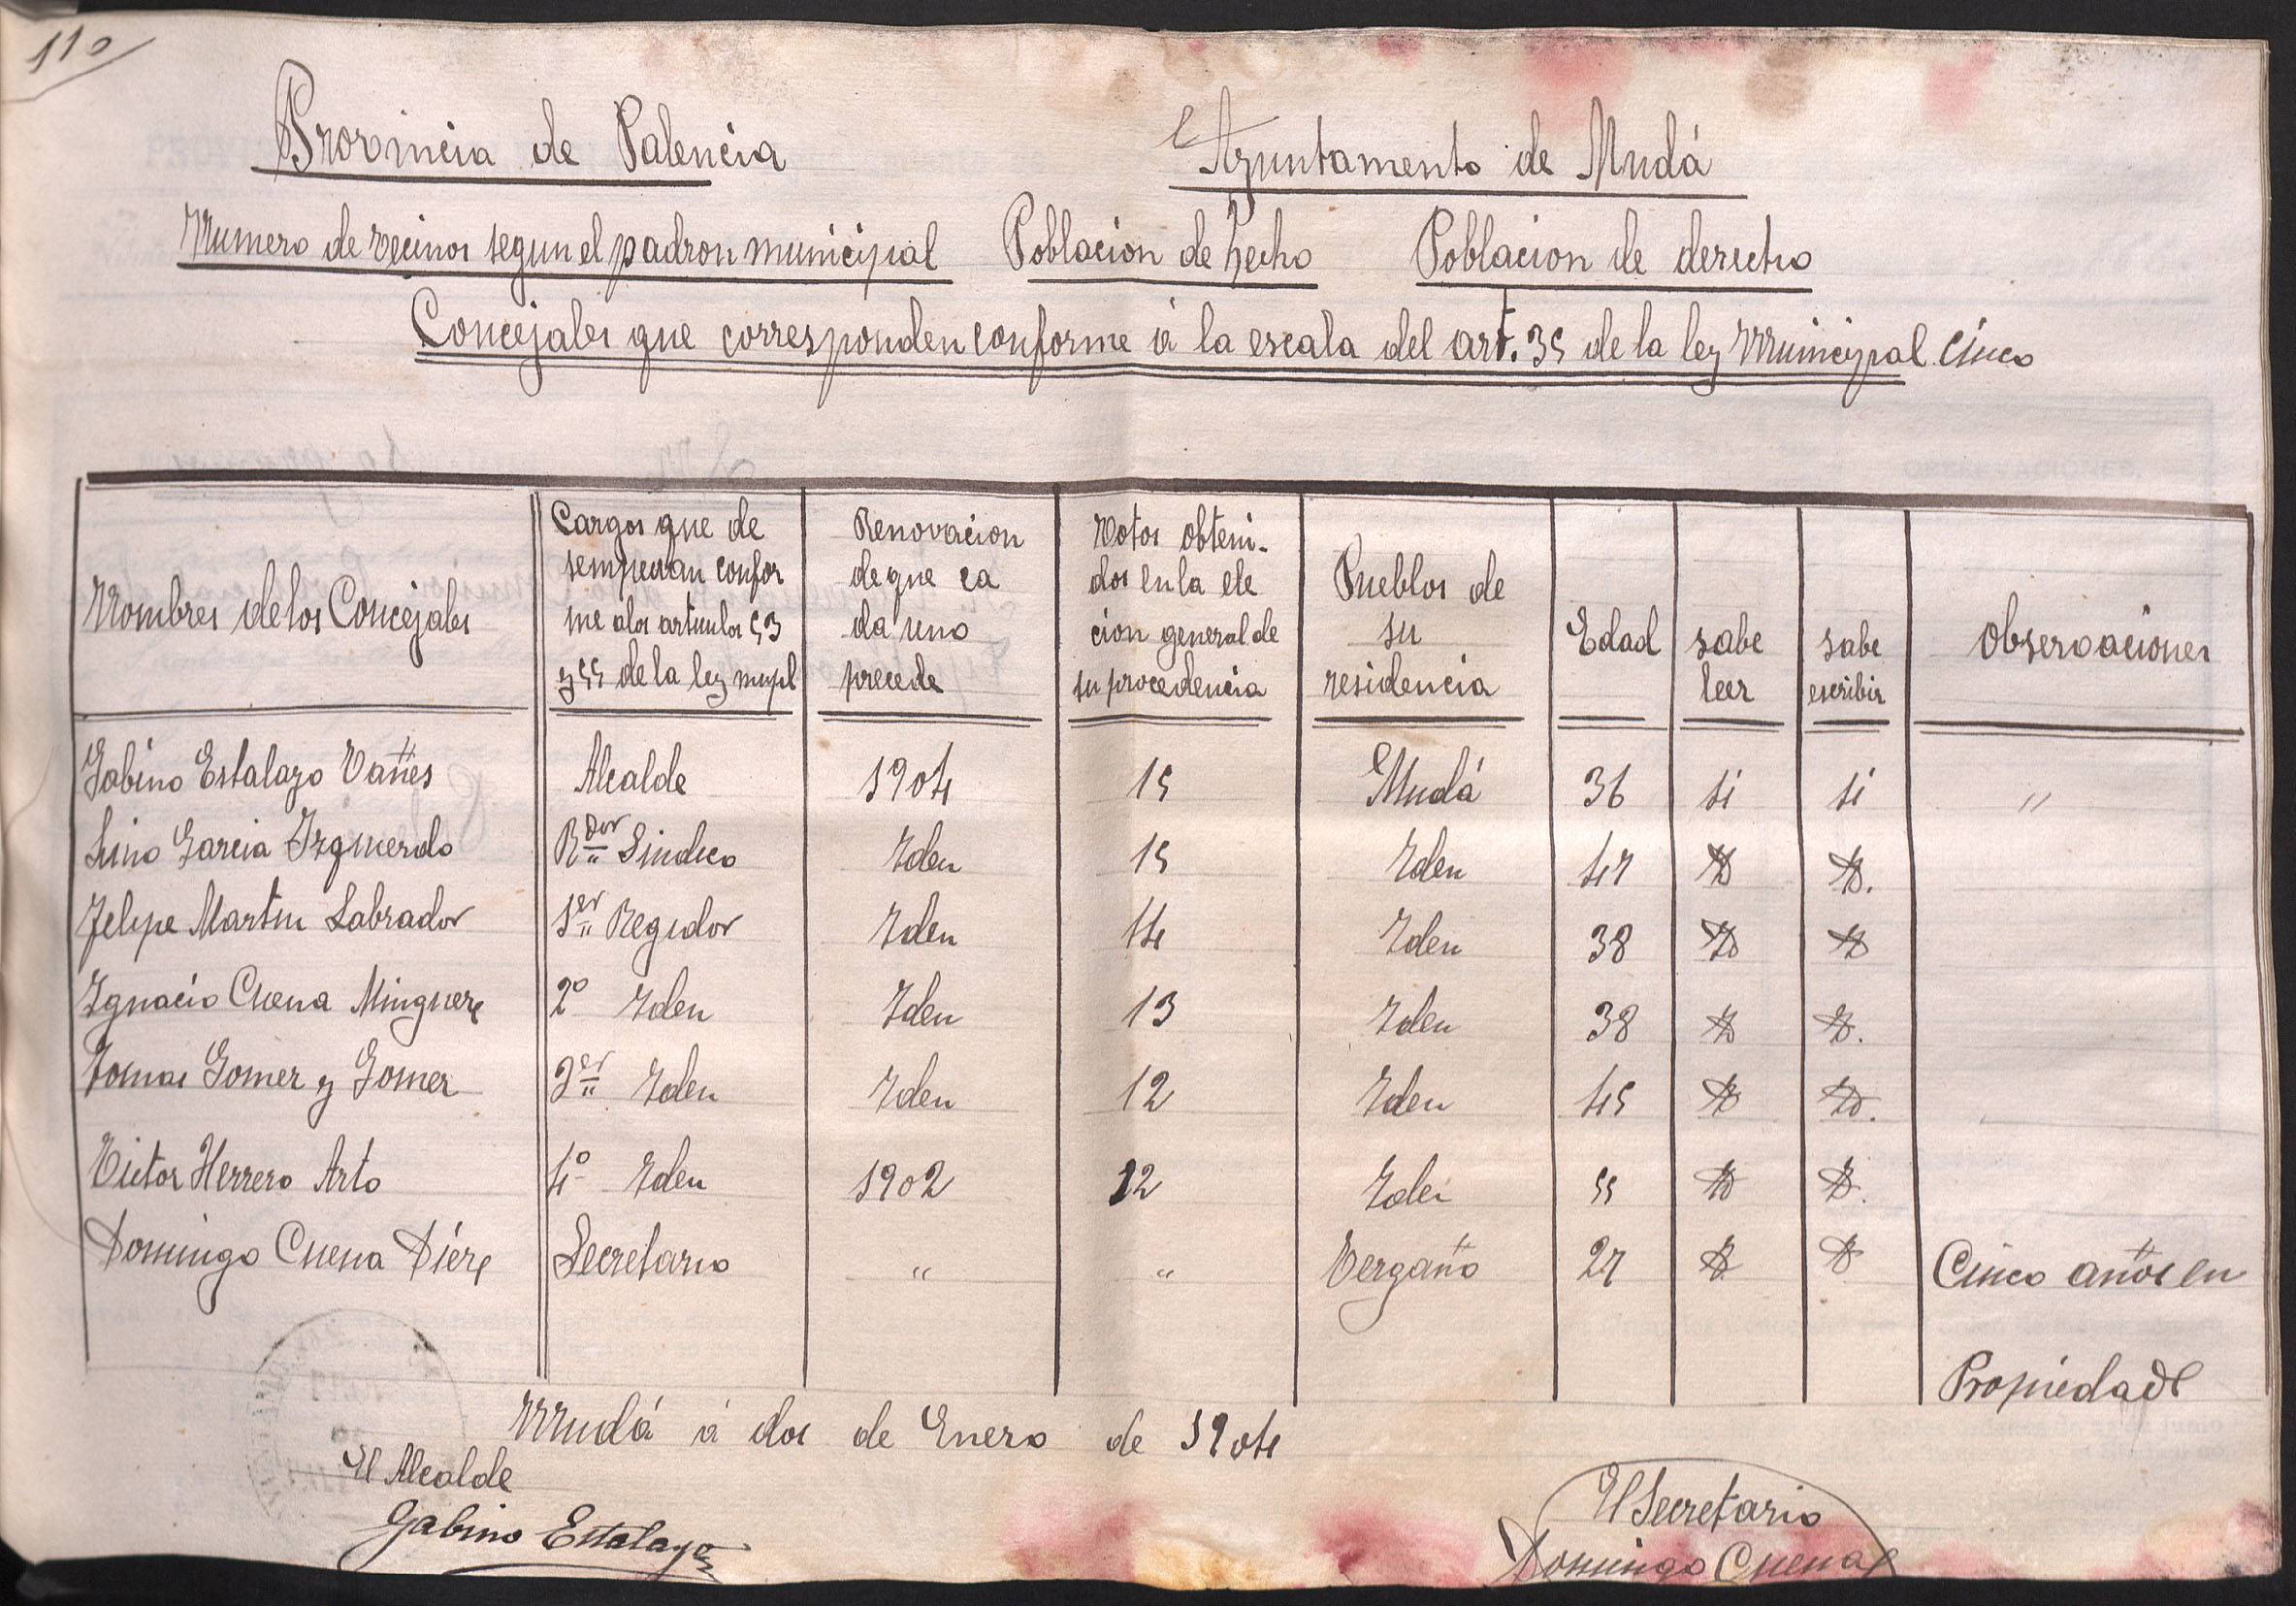 110
Provincia de Palencia Ayuntamento de Mudá
Numero de vecinos segun el padron municipal Poblacion de hecho Poblacion de derecho
Concejales que corresponden conforme á la escala del art. 35 de la ley Municipal cinco
Nombres de los Concejales
Cargos que de
sempeñan confor
me a los articulos 53
y 55 de la ley mupl
Renovacion
de que ca
da uno
precede
Votos obteni-
dos en la ele
cion general de
su procedencia
Pueblos de
su
residencia
Edad
sabe
leer
sabe
escribir
Observaciones
Gabino Estalayo Vañes Alcalde 1904 15 Mudá 36 si si "
Lino Garcia Izquierdo Rdor Sindico Yden 15 Yden 47 Yd Yd.
Felipe Martin Labrador 1er Regidor Yden 14 Yden 38 Yd Yd
Ygnacio Cuena Minguez 2º Yden Yden 13 Yden 38 Yd Yd.
Tomas Gomez y Gomez 3er Yden Yden 12 Yden 45 Yd Yd.
Victor Herrero Arto 4º Yden 1902 12 Yden 55 Yd Yd.
Domingo Cuena Diez Secretario " " Vergaño 27 Yd Yd Cinco años en
Propiedad
Mudá á dos de Enero de 1904
El Alcalde
Gabino Estalayo
El Secretario
Domingo Cuena